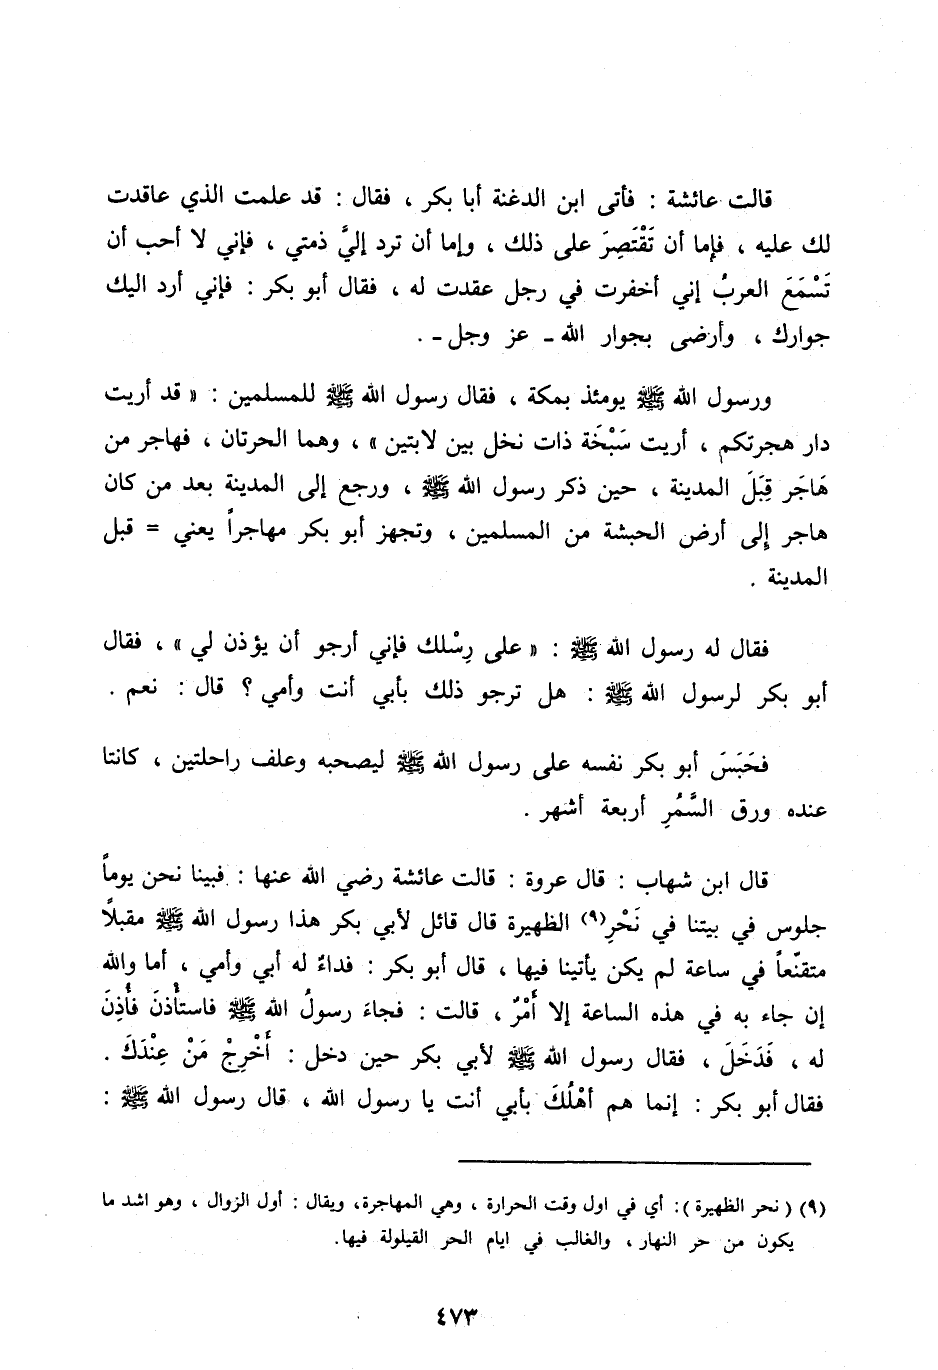 قالت عائشة : فأتى ابن الدغنة أبا بكر ، فقال : قد علمت الذي عاقدت
لك عليه ، فإما أن تَقْتَصِرَ على ذلك ، وإما أن ترد إليَّ ذمتي ، فإني لا أحب أن
تَسْمَعَ العربُ إني أخفرت في رجل عقدت له ، فقال أبو بكر : فإني أرد اليك
جوارك ، وأرضى بجوار الله ـ عز وجل ـ .
ورسول الله ﷺ يومئذ بمكة ، فقال رسول الله ﷺ للمسلمين : « قد أريت
دار هجرتكم ، أريت سَبْخَة ذات نخل بين لابتين » ، وهما الحرتان ، فهاجر من
هَاجَر قِبَلَ المدينة ، حين ذكر رسول الله ﷺ ، ورجع إلى المدينة بعد من كان
هاجر إلى أرض الحبشة من المسلمين ، وتجهز أبو بكر مهاجراً يعني = قبل
المدينة .
فقال له رسول الله ﷺ : « على رِسْلك فإني أرجو أن يؤذن لي » ، فقال
أبو بكر لرسول الله ﷺ : هل ترجو ذلك بأبي أنت وأمي ؟ قال : نعم .
فحَبَسَ أبو بكر نفسه على رسول الله ﷺ ليصحبه وعلف راحلتين ، كانتا
عنده ورق السَّمُرِ أربعة أشهر .
قال ابن شهاب : قال عروة : قالت عائشة رضي الله عنها : فبينا نحن يوماً
جلوس في بيتنا في نَحْرِ(٩) الظهيرة قال قائل لأبي بكر هذا رسول الله ﷺ مقبلًا
متقنّعاً في ساعة لم يكن يأتينا فيها ، قال أبو بكر : فداءٌ له أبي وأمي ، أما والله
إن جاء به في هذه الساعة إلا أَمْرٌ ، قالت : فجاءَ رسولُ الله ﷺ فاستأْذنَ فأُذِنَ
له ، فَدَخَلَ ، فقال رسول الله ﷺ لأبي بكر حين دخل : أَخْرِجْ مَنْ عِنْدَكَ .
فقال أبو بكر : إنما هم أهْلُكَ بأبي أنت يا رسول الله ، قال رسول الله ﷺ :
(٩) ( نحر الظهيرة ) : أي في اول وقت الحرارة ، وهي المهاجرة، ويقال : أول الزوال ، وهو اشد ما
يكون من حر النهار ، والغالب في ايام الحر القيلولة فيها.
٤٧٣